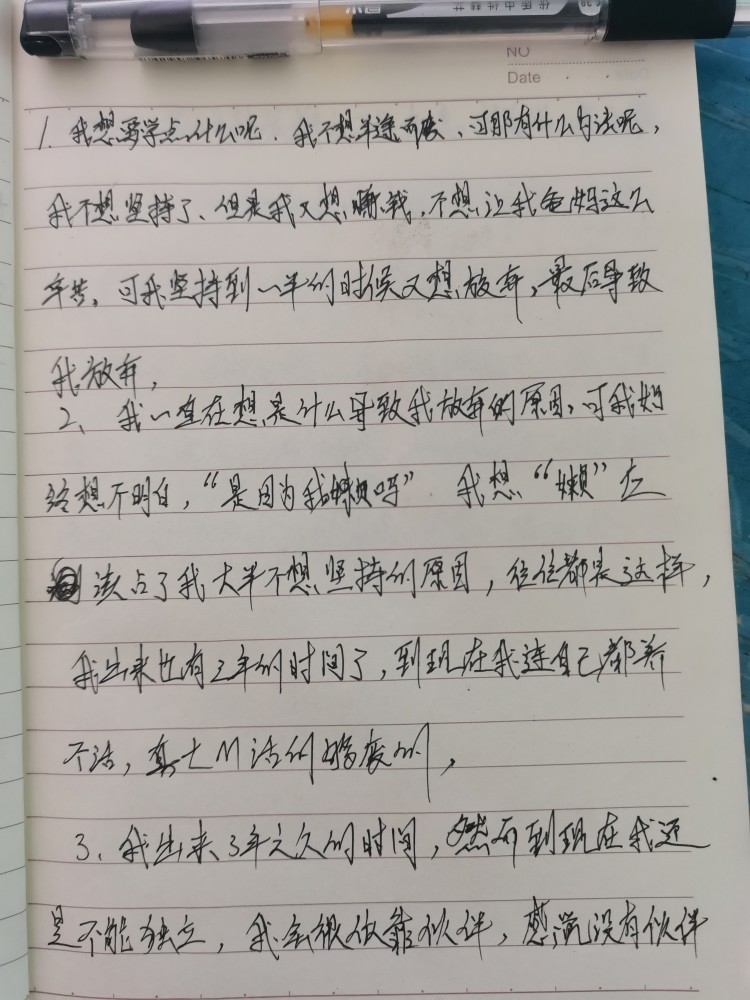 NO
Date
1. 我想要学点什么呢. 我不想半途而废、可那有什么办法呢,
我不想坚持了、但是我又想赚钱, 不想让我爸妈这么
辛苦。可我坚持到一半的时候又想放弃,最后导致
我放弃,
2、我一直在想是什么导致我放弃的原因,可我始
终想不明白,“是因为我懒吗” 我想“懒”应
该占了我大半不想坚持的原因,往往都是这样,
我出来也有2年的时间了,到现在我连自己都养
不活,真七八活的够废的,
3、我出来3年之久的时间,然而到现在我还
是不能独立,我会很依靠伙伴,感觉没有伙伴